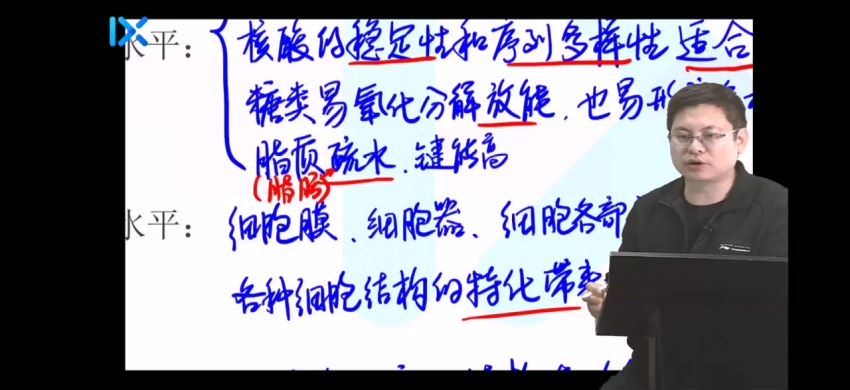 水平: 核酸的稳定性和序列多样性适合
糖类易氧化分解放能, 也易形
脂质疏水, 键能高
(脂肪)
水平: 细胞膜、细胞器、细胞各部
各种细胞结构的特化带来